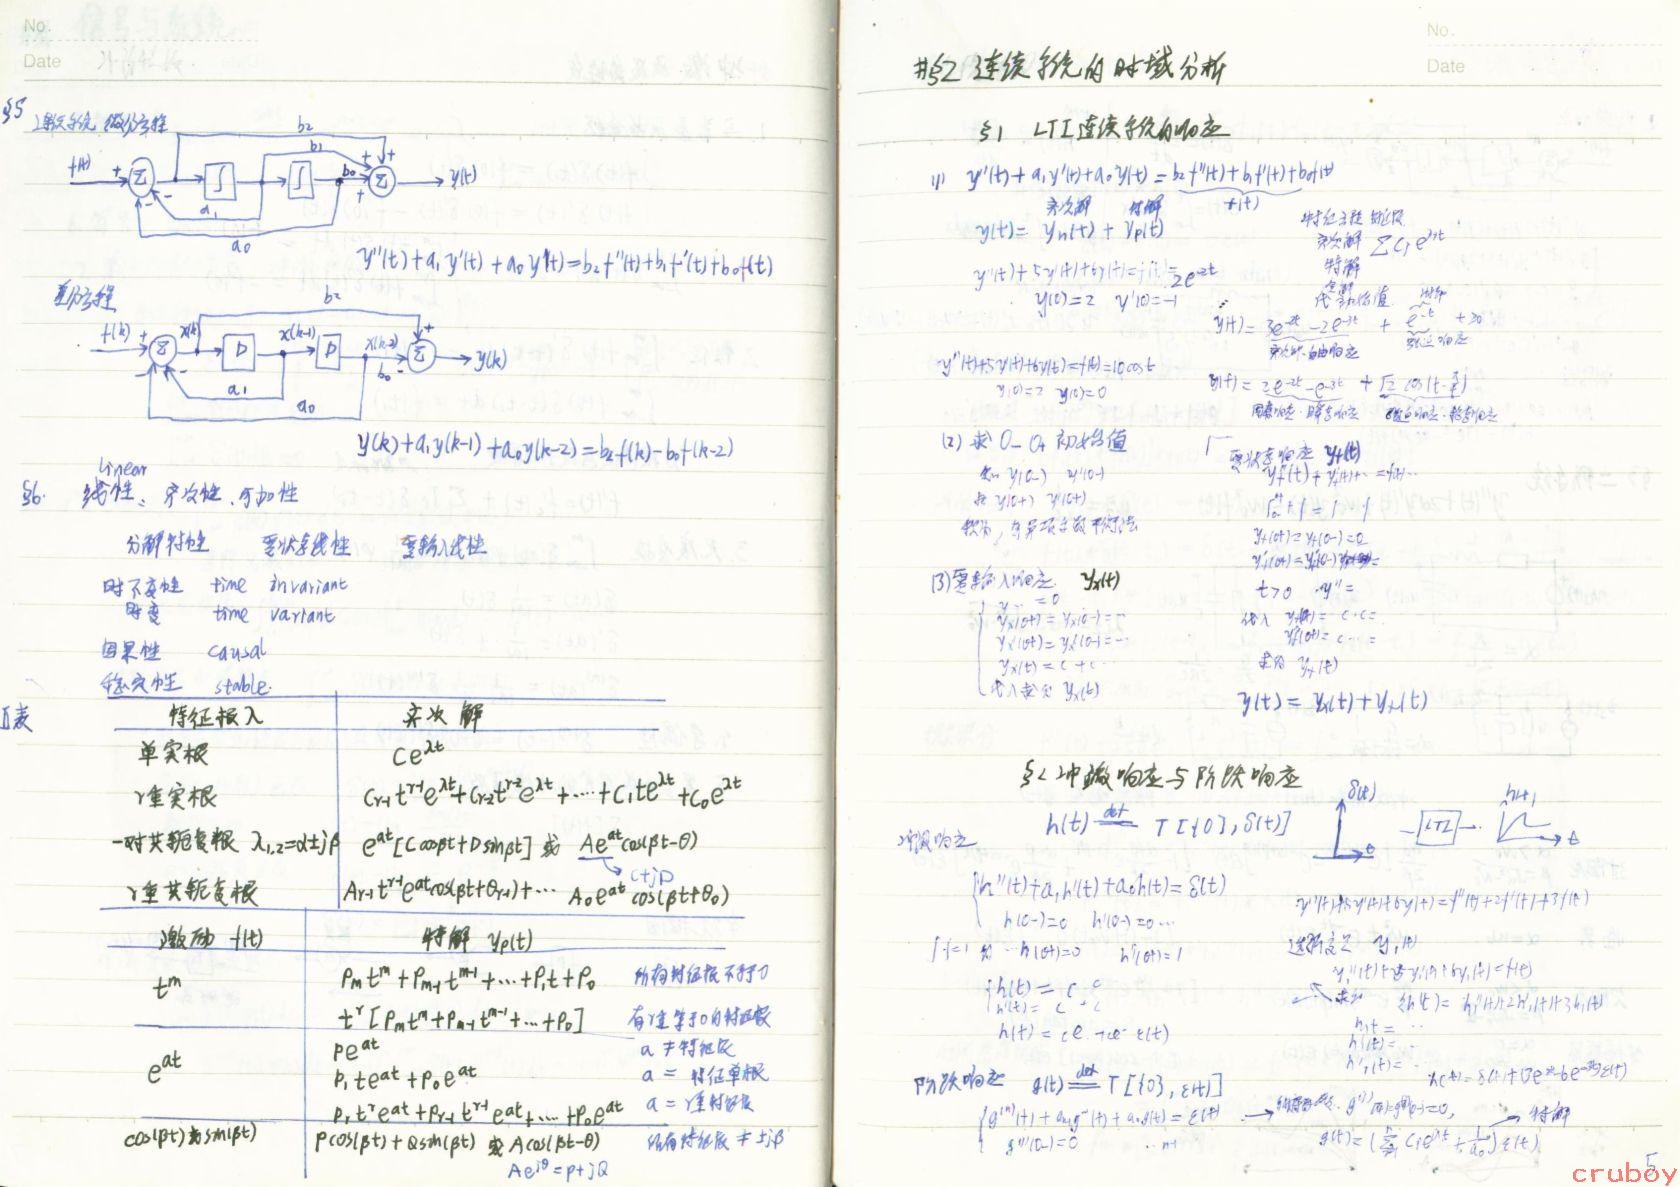 No.
Date
§5
连续系统 微分方程
b2
b1
f(t) + Σ ∫ ∫ b0 + Σ y(t)
a1
a0
y''(t)+a1y'(t)+a0y(t)=b2f''(t)+b1f'(t)+b0f(t)
差分方程
b2
f(k) + Σ x(k) D x(k-1) D x(k-2) b0 Σ y(k)
a1
a0
y(k)+a1y(k-1)+a0y(k-2)=b2f(k)-b0f(k-2)
linear
§6. 线性: 齐次性、可加性
分解特性 零状态线性 零输入线性
时不变性 time invariant
时变 time variant
因果性 causal
稳定性 stable.
特征根λ 齐次解
单实根 Ce^λt
r重实根 Cr-1 t^r-1 e^λt+Cr-2 t^r-2 e^λt+…+C1te^λt+C0e^λt
一对共轭复根 λ1,2=α±jβ e^αt[Ccosβt+Dsinβt] 或 Ae^αt cos(βt-θ)
C+jD
r重共轭复根 Ar-1 t^r-1 e^αt cos(βt+θr-1)+… A0e^αt cos(βt+θ0)
激励 f(t) 特解 yp(t)
t^m Pm t^m+Pm-1 t^m-1+…+P1t+P0 所有特征根不等于0
t^r[Pm t^m+Pm-1 t^m-1+…+P0] 有r重等于0的特征根
e^αt Pe^αt α≠特征根
P1te^αt+P0e^αt α=特征单根
Pr t^r e^αt+Pr-1 t^r-1 e^αt+…+P0e^αt α=r重特征根
cos(βt)或sin(βt) Pcos(βt)+Qsin(βt) 或 Acos(βt-θ) 所有特征根≠±jβ
Ae^jθ=P+jQ
No.
Date
#§2 连续系统的时域分析
§1 LTI连续系统的响应
(1) y''(t)+a1y'(t)+a0y(t)=b2f''(t)+b1f'(t)+b0f(t)
齐次解 特解 f(t)
y(t)= yh(t)+yp(t)
特征方程 特征根
齐次解 ΣCie^λt
特解
全解
代 初始值
y''(t)+5y'(t)+6y(t)=f(t)=2e^-t
y(0)=2 y'(0)=-1
y(t)=3e^-2t-2e^-3t + e^-t
齐次解·自由响应 强迫响应
y''(t)+5y'(t)+6y(t)=f(t)=10cost
y(0)=2 y'(0)=0
y(t)=2e^-2t-e^-3t+√2cos(t-π/4)
自由响应·瞬态响应 强迫响应·稳态响应
(2) 求0- 0+初始值
如 y(0-) y'(0-)
求 y(0+) y'(0+)
(3)零输入响应. yx(t)
=0
yx(0+)=yx(0-)=…
yx'(0+)=yx'(0-)=…
yx(t)=c+c…
代入求得 yx(t)
零状态响应 yf(t)
yf(0+)=yf(0-)=0
t>0 y''=
代入
求得 yf(t)
y(t)=yx(t)+yf(t)
§2 冲激响应与阶跃响应
冲激响应 h(t) def T[{0},δ(t)]
δ(t) LTI h(t)
t
h''(t)+a1h'(t)+a0h(t)=δ(t)
h(0-)=0 h'(0-)=0…
h(0+)=0 h'(0+)=1
h(t)=c c
h'(t)=c c
h(t)=ce +ce ε(t)
y''(t)+5y'(t)+6y(t)=f''(t)+2f'(t)+3f(t)
选新变量 y1(t)
y1''(t)+5y1'(t)+6y1(t)=f(t)
求出 h(t)=h1''(t)+2h1'(t)+3h1(t)
h1t=…
h1'(t)=…
h1''(t)=…
h(t)=δ(t)+(3e^-2t-6e^-3t)ε(t)
阶跃响应 g(t) def T[{0},ε(t)]
特解
5
cruboy